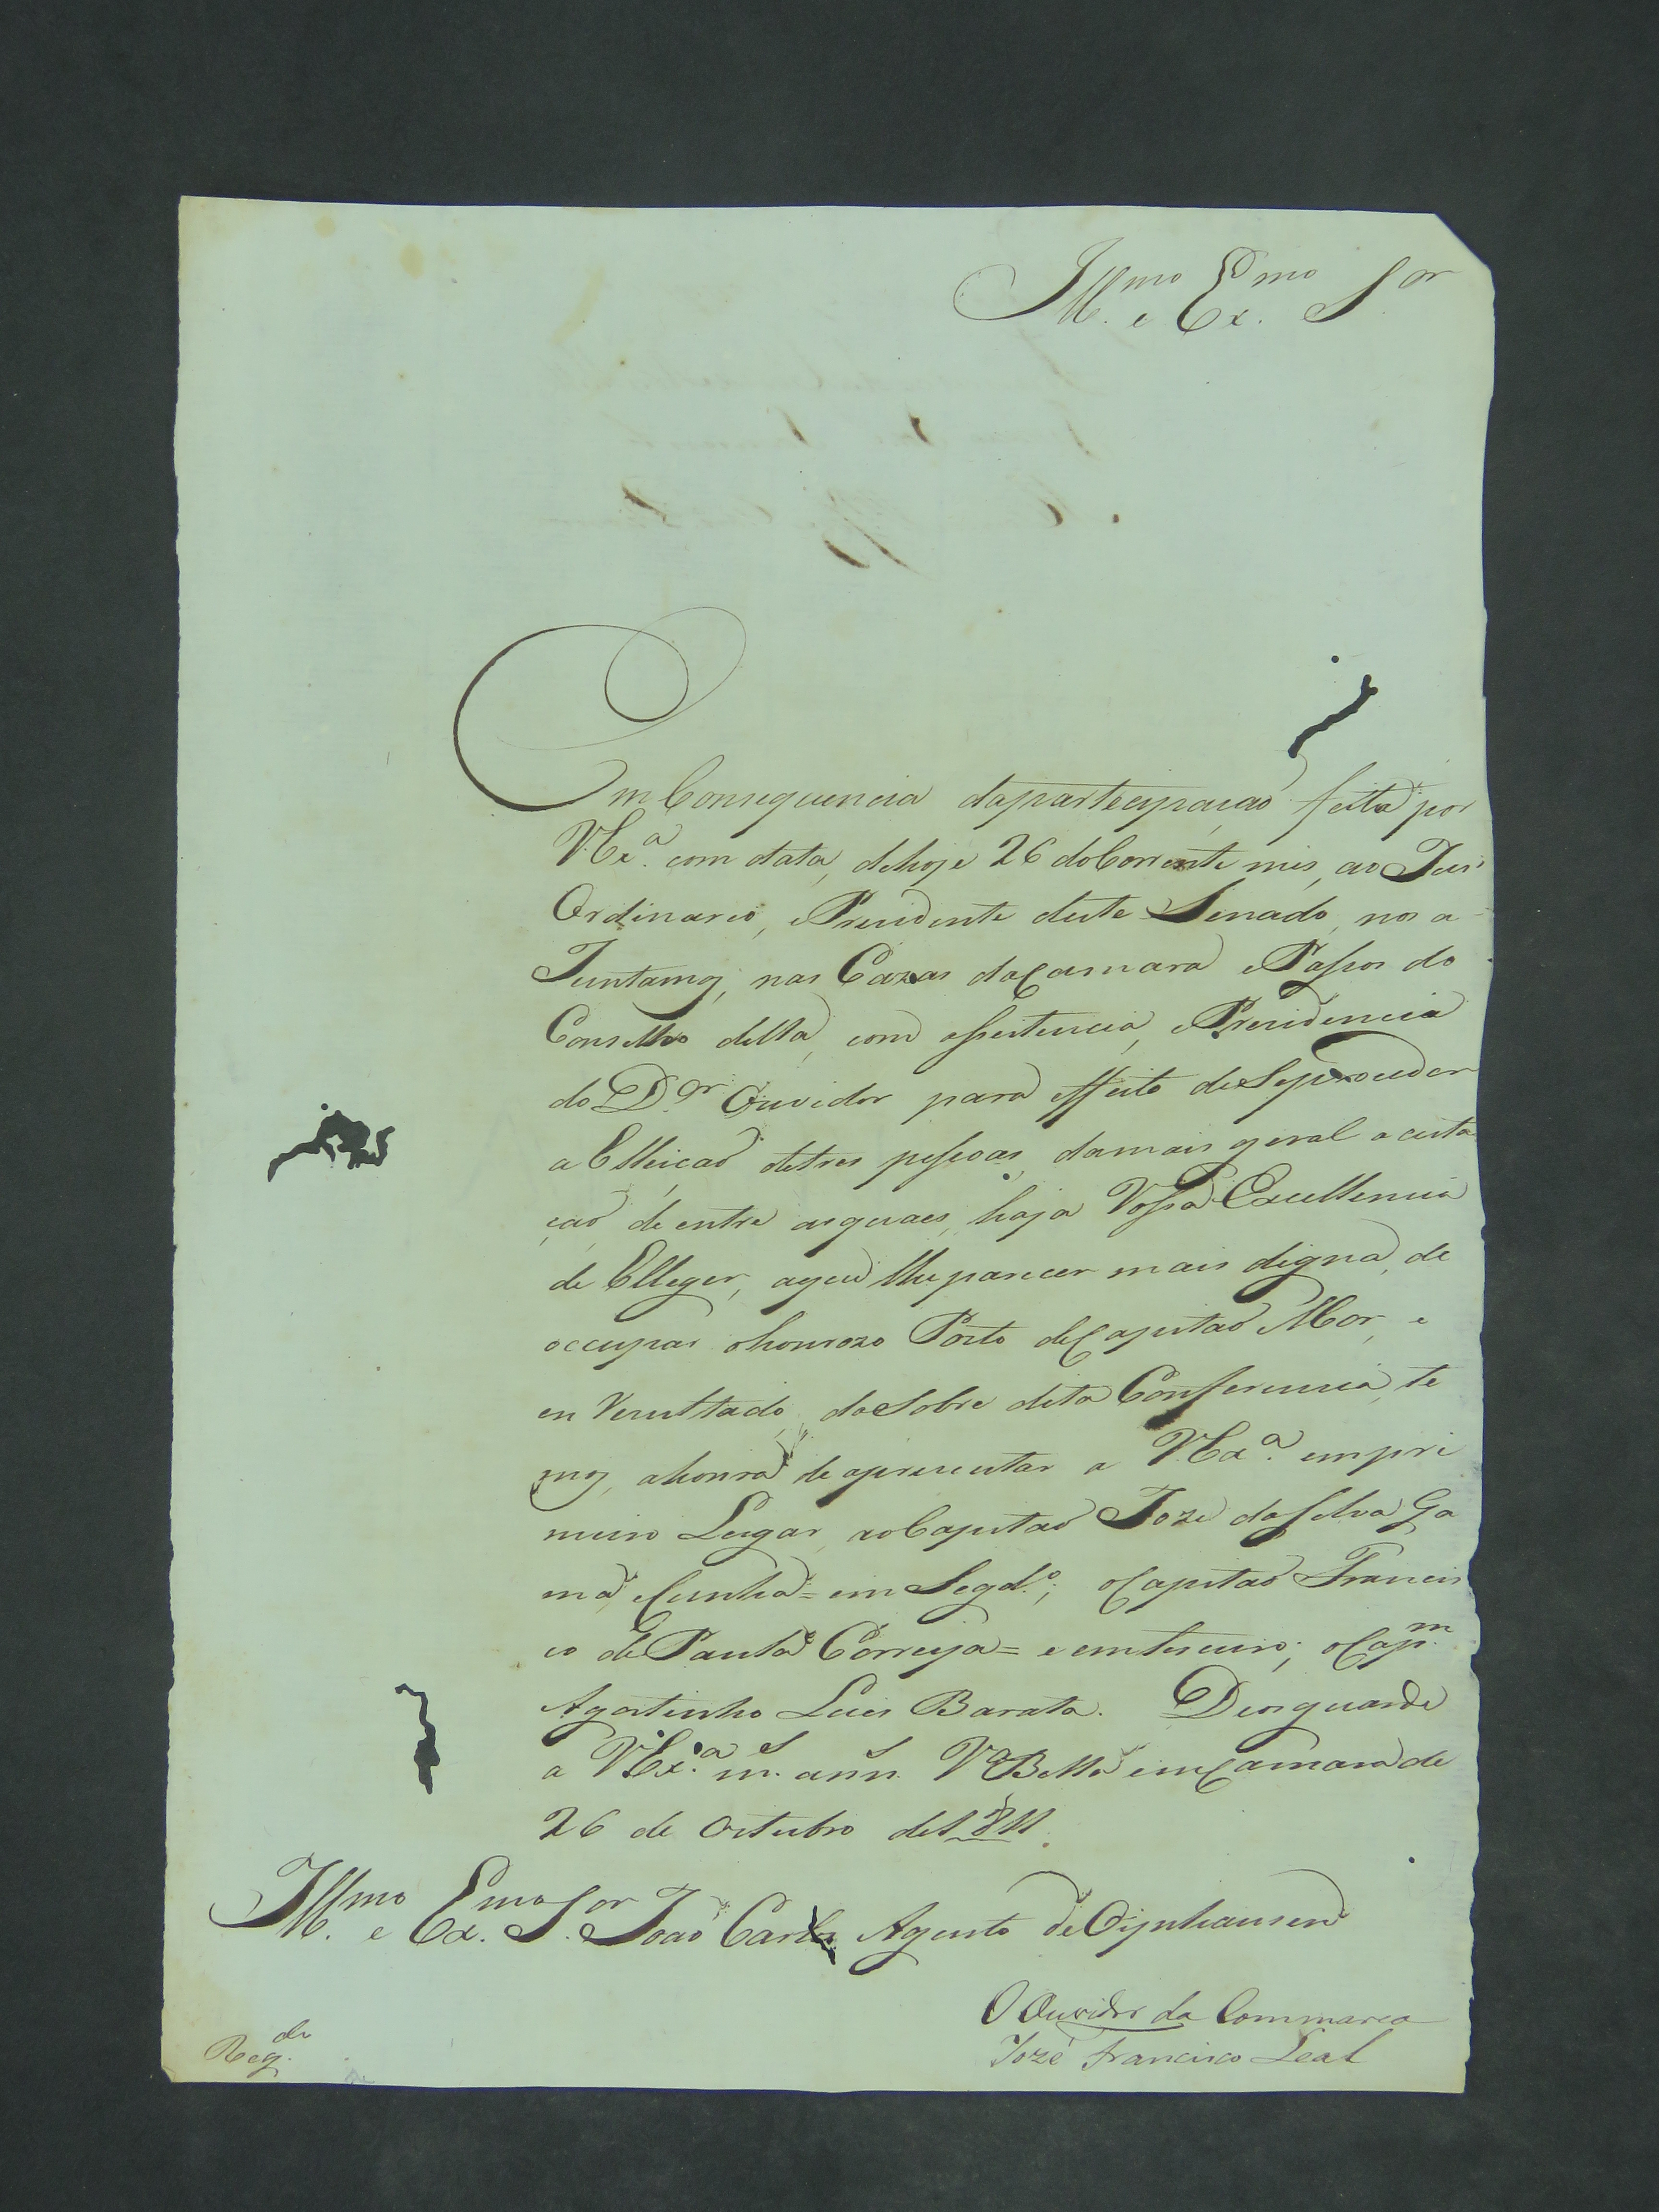 Ill.mo e Ex.mo S.or
Em Consequencia da partecipação feita por
V Ex.a com data, de hoje 26 do Corrente mes, ao Juis
Ordinario, e Prezidente deste Senado, nos a-
Juntamos, nas Cazas da Camara e Passos do
Conselho della, com assestencia, e Prezidencia
do D.or Ouvidor para effeito de Se proceder
a Elleicaõ de tres pessoas, da mais geral aceita
çaõ, de entre as quaes, haja Vossa Excellencia
de Elleger, aque lhe parecer mais digna, de
occupar o honrozo Posto de Capitaõ Mor, e
en Rezultado, da Sobre dita Conferencia, te
mos, a honra de aprezentar a V Ex.a em pri
meiro Lugar, ao Capitaõ Joze da Silva Ga
ma, e Cunha = em Segd.o; o Capitaõ Francis
co de Paula Correya = e em terceiro; o Cap.m
Agostinho Luis Barata. Deos guarde
a V Ex.a m.s ann.s V.a Bella em Camara de
26 de Oitubro de 1811.
Ill.mo e Ex.mo S.or Joaõ Carlos Agusto de Oijnhausen
O Ouvidor da Commarca
Jozé Francisco Leal
Reg.da